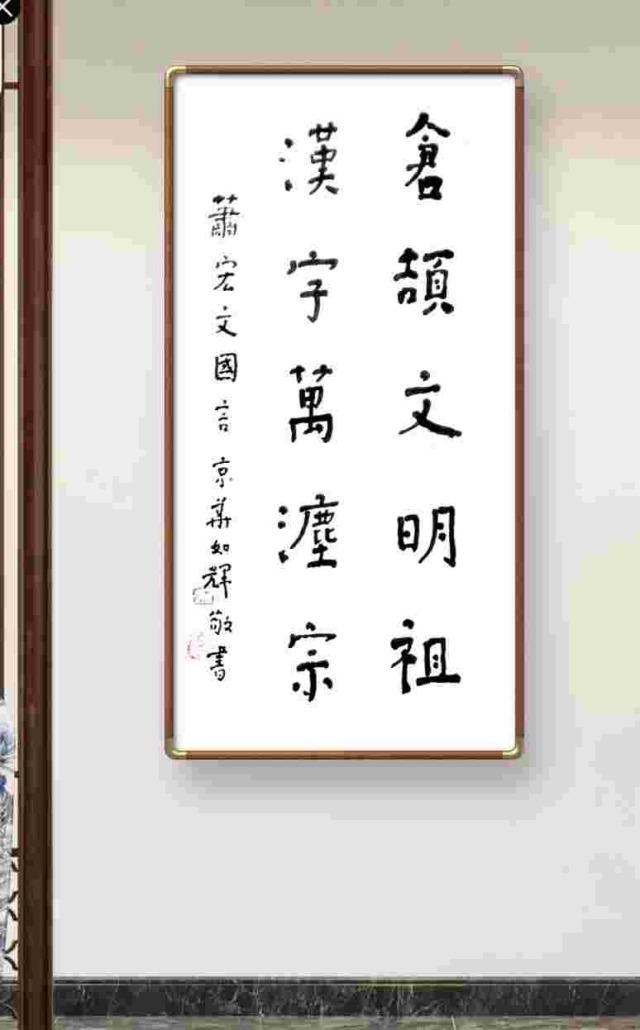 倉頡文明祖
漢字萬㕓宗
蕭宏文國言京華如輝敬書